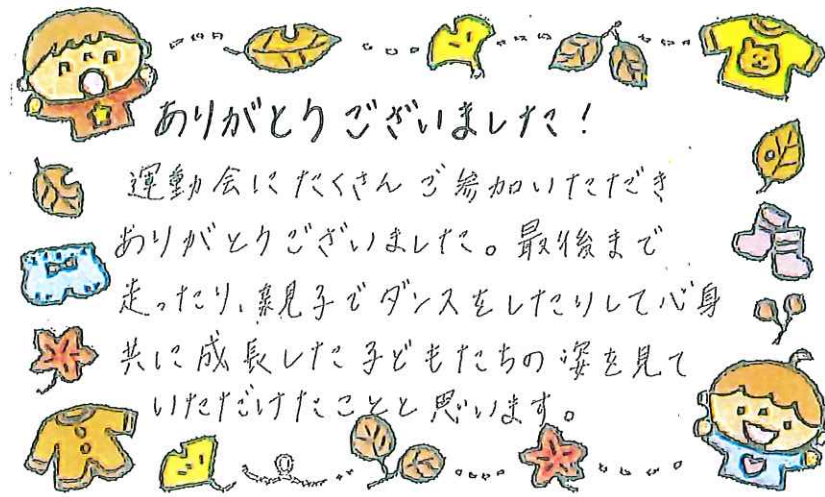 ありがとうございました!
運動会にたくさんご参加いただき
ありがとうございました。最後まで
走ったり、親子でダンスをしたりして心身
共に成長した子どもたちの姿を見て
いただけたことと思います。